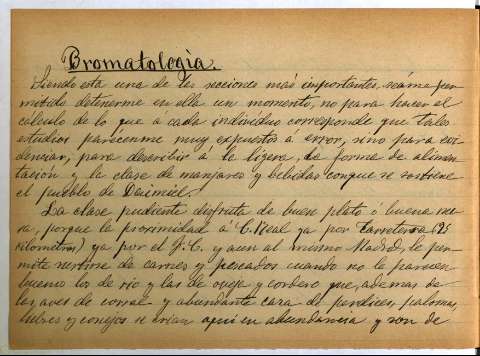 Bromatologia.
Siendo esta una de las secciones más importantes, seáme per
mitido detenerme en ella un momento, no para hacer el
cálculo de lo que á cada individuo corresponde que tales
estudios parécenme muy expuestos á error, sino para evi
denciar, para describir á la ligera, la forma de alimen
tación y la clase de manjares y bebidas conque se sostiene
el pueblo de Daimiel.
La clase pudiente disfruta de buen plato ó buena me
sa, porque la proximidad á C. Real ya por Carretera (25
kilometros) ya por el f. C. y aun al mismo Madrid, le per
mite surtirse de carnes y pescados cuando no le parecen
buenos los de rio y las de oveja y cordero que, ademas de
las aves de corral y abundante caza de perdices, palomas,
liebres y conejos se crian aqui en abundancia y son de